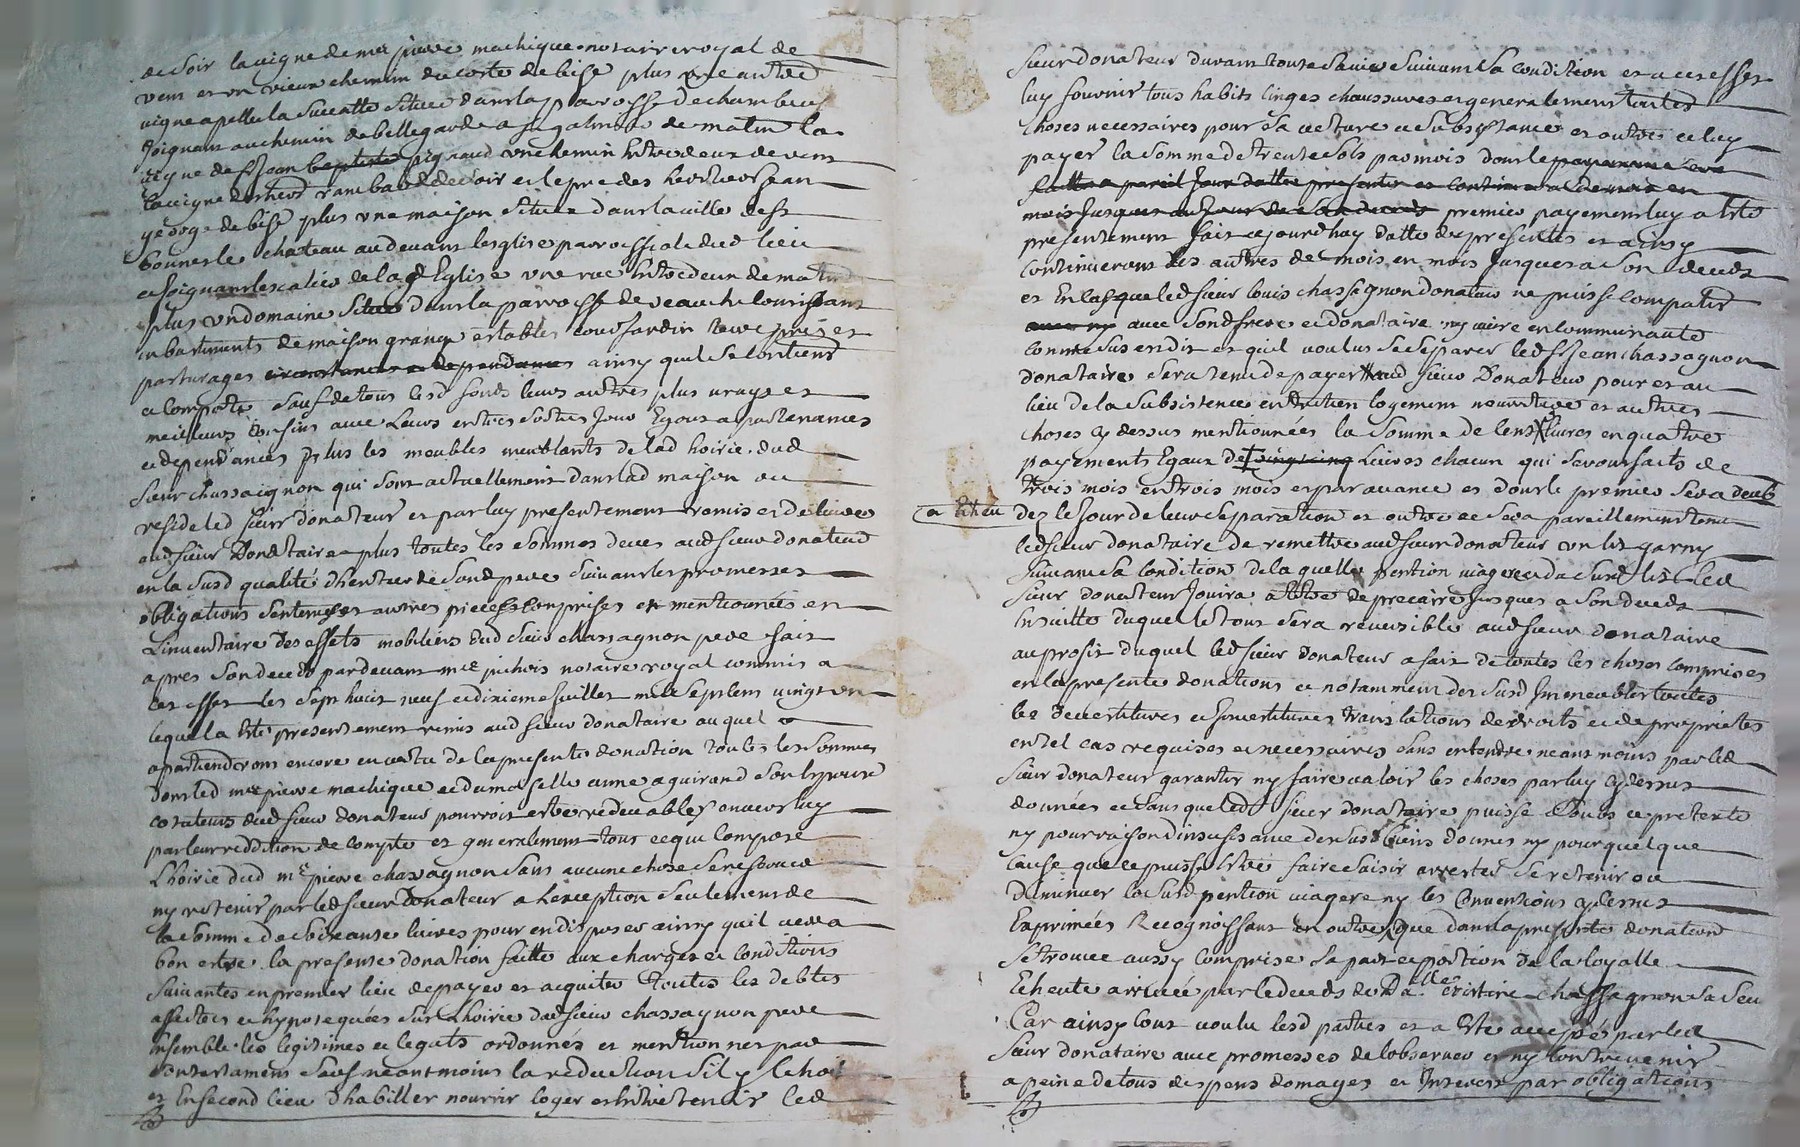 de soir la vigne de me pierre machique notaire royal de
vent et un vieux chemin du costé de bise plus une autre
vigne apellee la situee dans la parroisse de chambeuf
joignant au chemin de bellegarde a st galmier de matin la
vigne de sr jean baptiste pignaud un chemin entre deux de vent
la vigne des hers rambaud de soir et le pre des heritiers jean
de bise plus une maison situee dans la ville de st
bonnet le chateau au devant lesglise parroissiale dud lieu
et joignant de lad Eglise une rue entre deux de matin
plus un domaine situee dans la parroisse de veauche
en bastiments de maison grange estables cour jardin terres prés et
pasturages circonstances et dependances ainsy quil se contient
et comporte sauf de tous lesd fonds leurs autres plus vrays et
meilleurs confins avec leurs entrées sorties jour Egout apartenances
et dependances plus les meubles meublants de lad hoirie dud
sieur chassaignon qui sont actuellement dans lad maison ou
reside led sieur donateur et par luy presentement remis et delivrés
aud sieur Donataire plus toutes les sommes deues aud sieur donateur
en la susd qualité dheritier de sond pere suivant les promesses
obligations sentences et autres pieces comprises et mentionnées en
Linventaire des effets mobiliers dud sieur chassagnon pere fait
apres son deceds pardevant me pichois notaire royal commis a
cet effet les sept huit neuf et dixieme juillet mille sept cent vingt un
lequel a été presentement remis aud sieur donataire auquel
apartiendront encore en vertu de la presente donation toutes les sommes
dont led me pierre machique et damoiselle anne aguirand son epouse
curateurs dud sieur donateur pourroit estre redevables envers luy
par leur reddition de compte et generalement tout ce qui compose
Lhoirie dud me pierre chassagnon sans aucune chose se reserver
ny retenir par led sieur Donateur a lexception seulement de
la somme de soixante livres pour en disposer ainsy quil verra
bon estre la presente donation faitte aux charges et conditions
suivantes en premier lieu de payer et aquiter toutes les debtes
affectées et hypotequées sur Lhoirie dud sieur chassagnon pere
ensemble les legitimes et legats ordonnés et mentionnés par
son testament sauf neantmoins la reduction sil y echoit
et En second lieu Dhabiller nourrir loger et entretenir led
sieur donateur durant toute sa vie suivant sa condition et a cet effet
luy fournir tous habits linges chaussures et generalement toutes
choses necessaires pour sa vesture et subsistance et outre ce luy
payer la somme de trente sols par mois dont le payement sera
fait a pareil jour datte presentes et continuera de mois en
mois jusques au jour de son deceds premier payement luy a été
presentement fait cejourdhuy datte des presentes et ainsy
continueront les autres de mois en mois jusques a son deceds
et En cas que led sieur louis chassagnon donateur ne puisse compatir
avec sond frere et donataire ny vivre en communauté
comme sus est dit et quil voulut se separer led sr jean chassagnon
donataire sera tenu de payer aud sieur Donateur pour et au
lieu de la subsistence entretien logement nourriture et autres
choses cy dessus mentionnées la somme de cent livres en quatre
payements Egaux de vingt cinq Livres chacun qui seront faits de
trois mois en trois mois et par avance et dont le premier sera deub
dez le jour de leur separation et outre ce sera pareillement tenu
led sieur donataire de remettre aud sieur donateur un lit garny
suivant sa condition de laquelle pention viagere et du susd lit led
sieur donateur jouira a titre de precaire jusques a son deceds
Ensuitte duquel le tout sera reversible aud sieur donataire
au profit duquel led sieur donateur a fait de toutes les choses comprises
en la presente donations et notamment des susd Immeubles toutes
les devestitures et investitures translations de droits et de proprietes
en tel cas requises et necessaires sans entendre neantmoins par led
sieur donateur garantir ny faire valoir les choses par luy cy dessus
données et sans que led sieur donataire puisse sous ce pretexte
ny pour raison dinsufisance des susd Biens donnés ny pour quelque
cause que ce puisse être faire saisir arrester se retenir ou
Diminuer la susd pention viagere ny les Conventions cy dessus
Exprimées Recognoissant en outre que dans la presente donation
se trouve aussy comprise sa part et portion de la loyalle
Echeute arrivée par le deceds de Dalle cristine chassagnon sa seur
Car ainsy lont voulu lesd parties et a été accepté par led
sieur donataire avec promesses de lobserver et ny contrevenir
a peine de tous despens domages et Interest par obligations